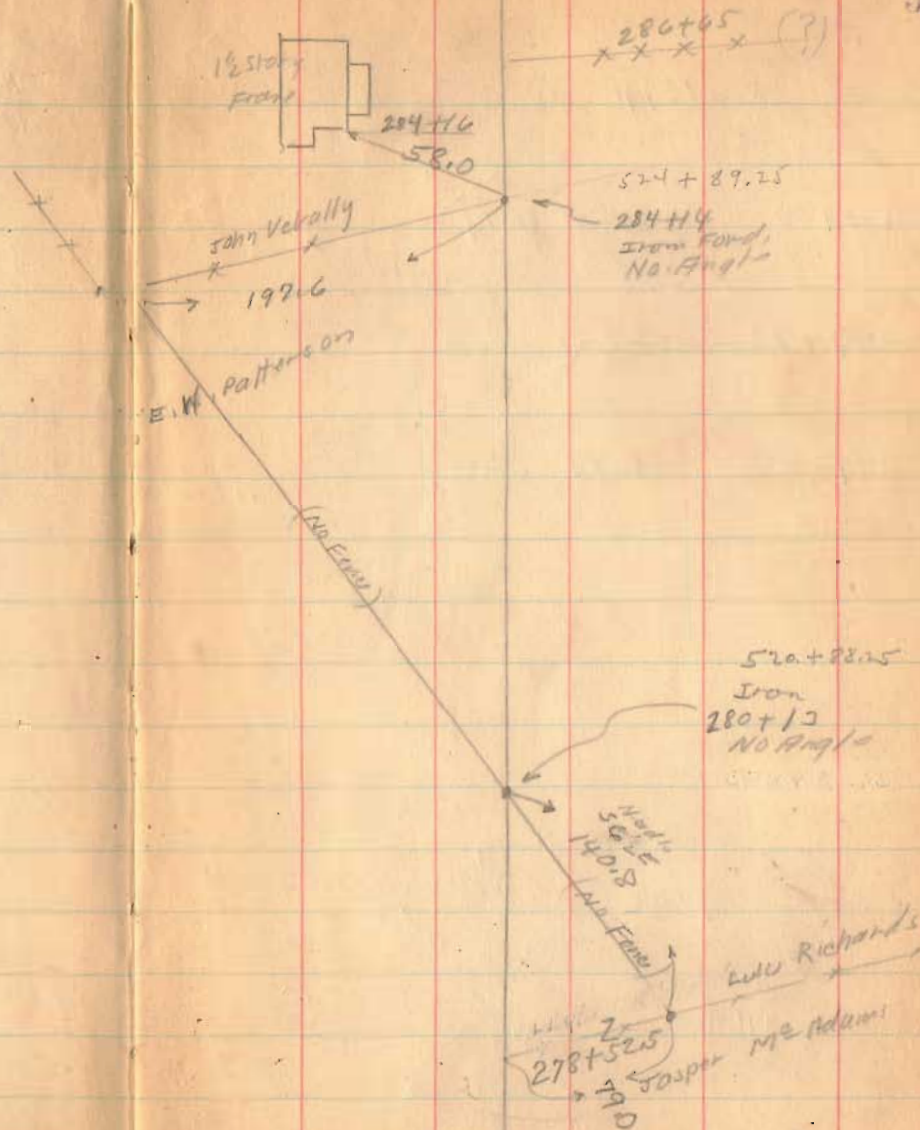 286+65 (?)
1½ Story
Frame
284+16
58.0
524 + 89.25
284+14
Iron Found,
No. Angle
John Verally
197.6
E.W. Patterson
(No Fence)
520.+88.25
Iron
280+13
No Angle
140.8
(No Fence)
Lulu Richards
278+52.5
Jasper Mc Adams
79.0